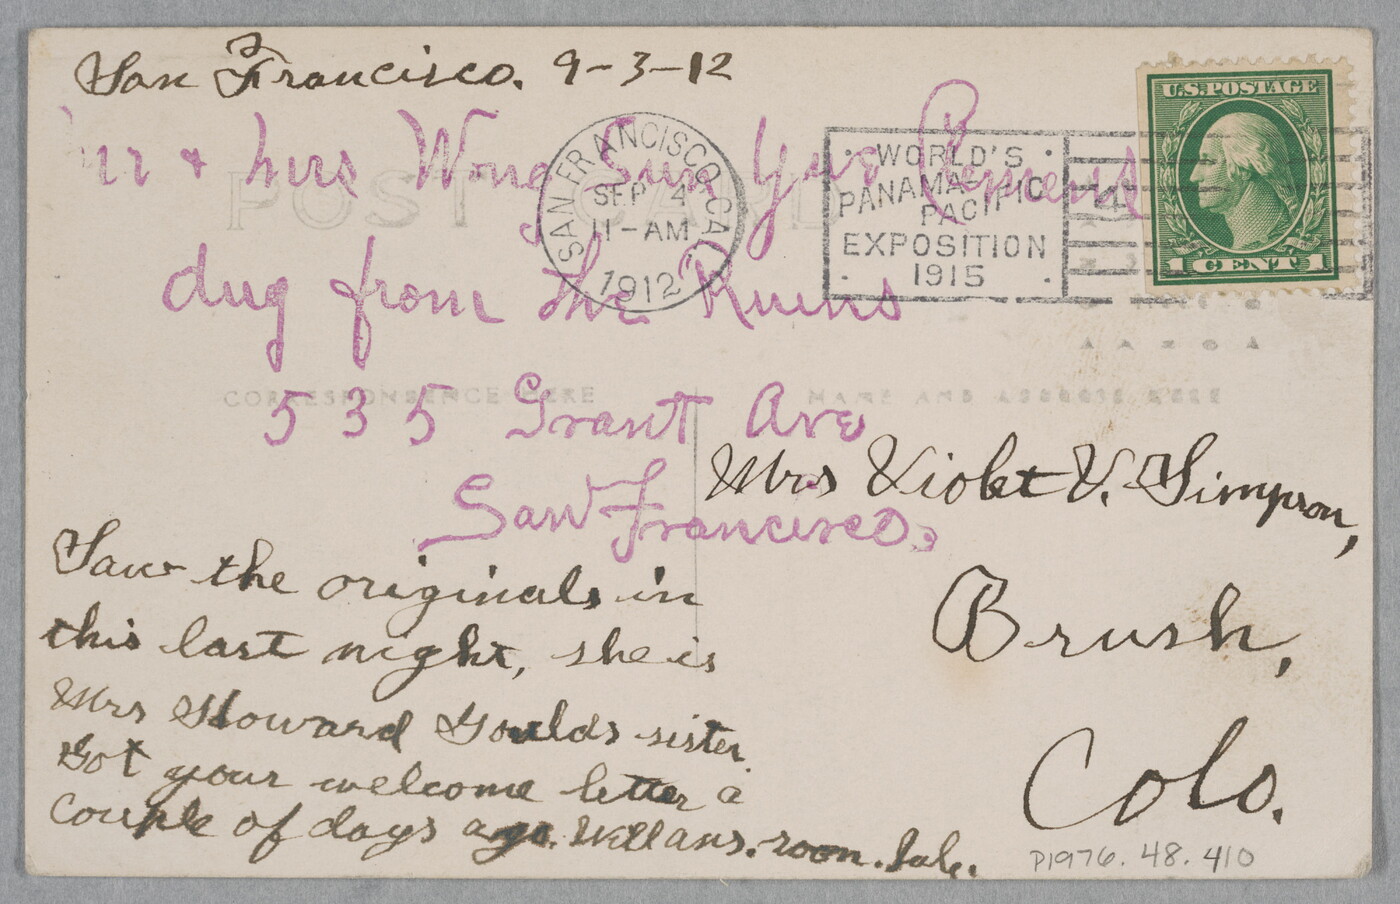 San Francisco. 9-3-12
mr & mrs Wong Sun Yue Clemens
dug from the Ruins
535 Grant Ave
San Francisco.
POST CARD
SAN FRANCISCO, CAL.
SEP 4
11-AM
1912
WORLD'S
PANAMA
PACIFIC
EXPOSITION
1915
U.S. POSTAGE
1 CENT 1
CORRESPONDENCE HERE
NAME AND ADDRESS HERE
Mrs Violet V. Simpson,
Brush,
Colo.
Saw the originals in
this last night, she is
Mrs Howard Goulds sister.
Got your welcome letter a
couple of days ago. Will ans. soon.
P1976.48.410